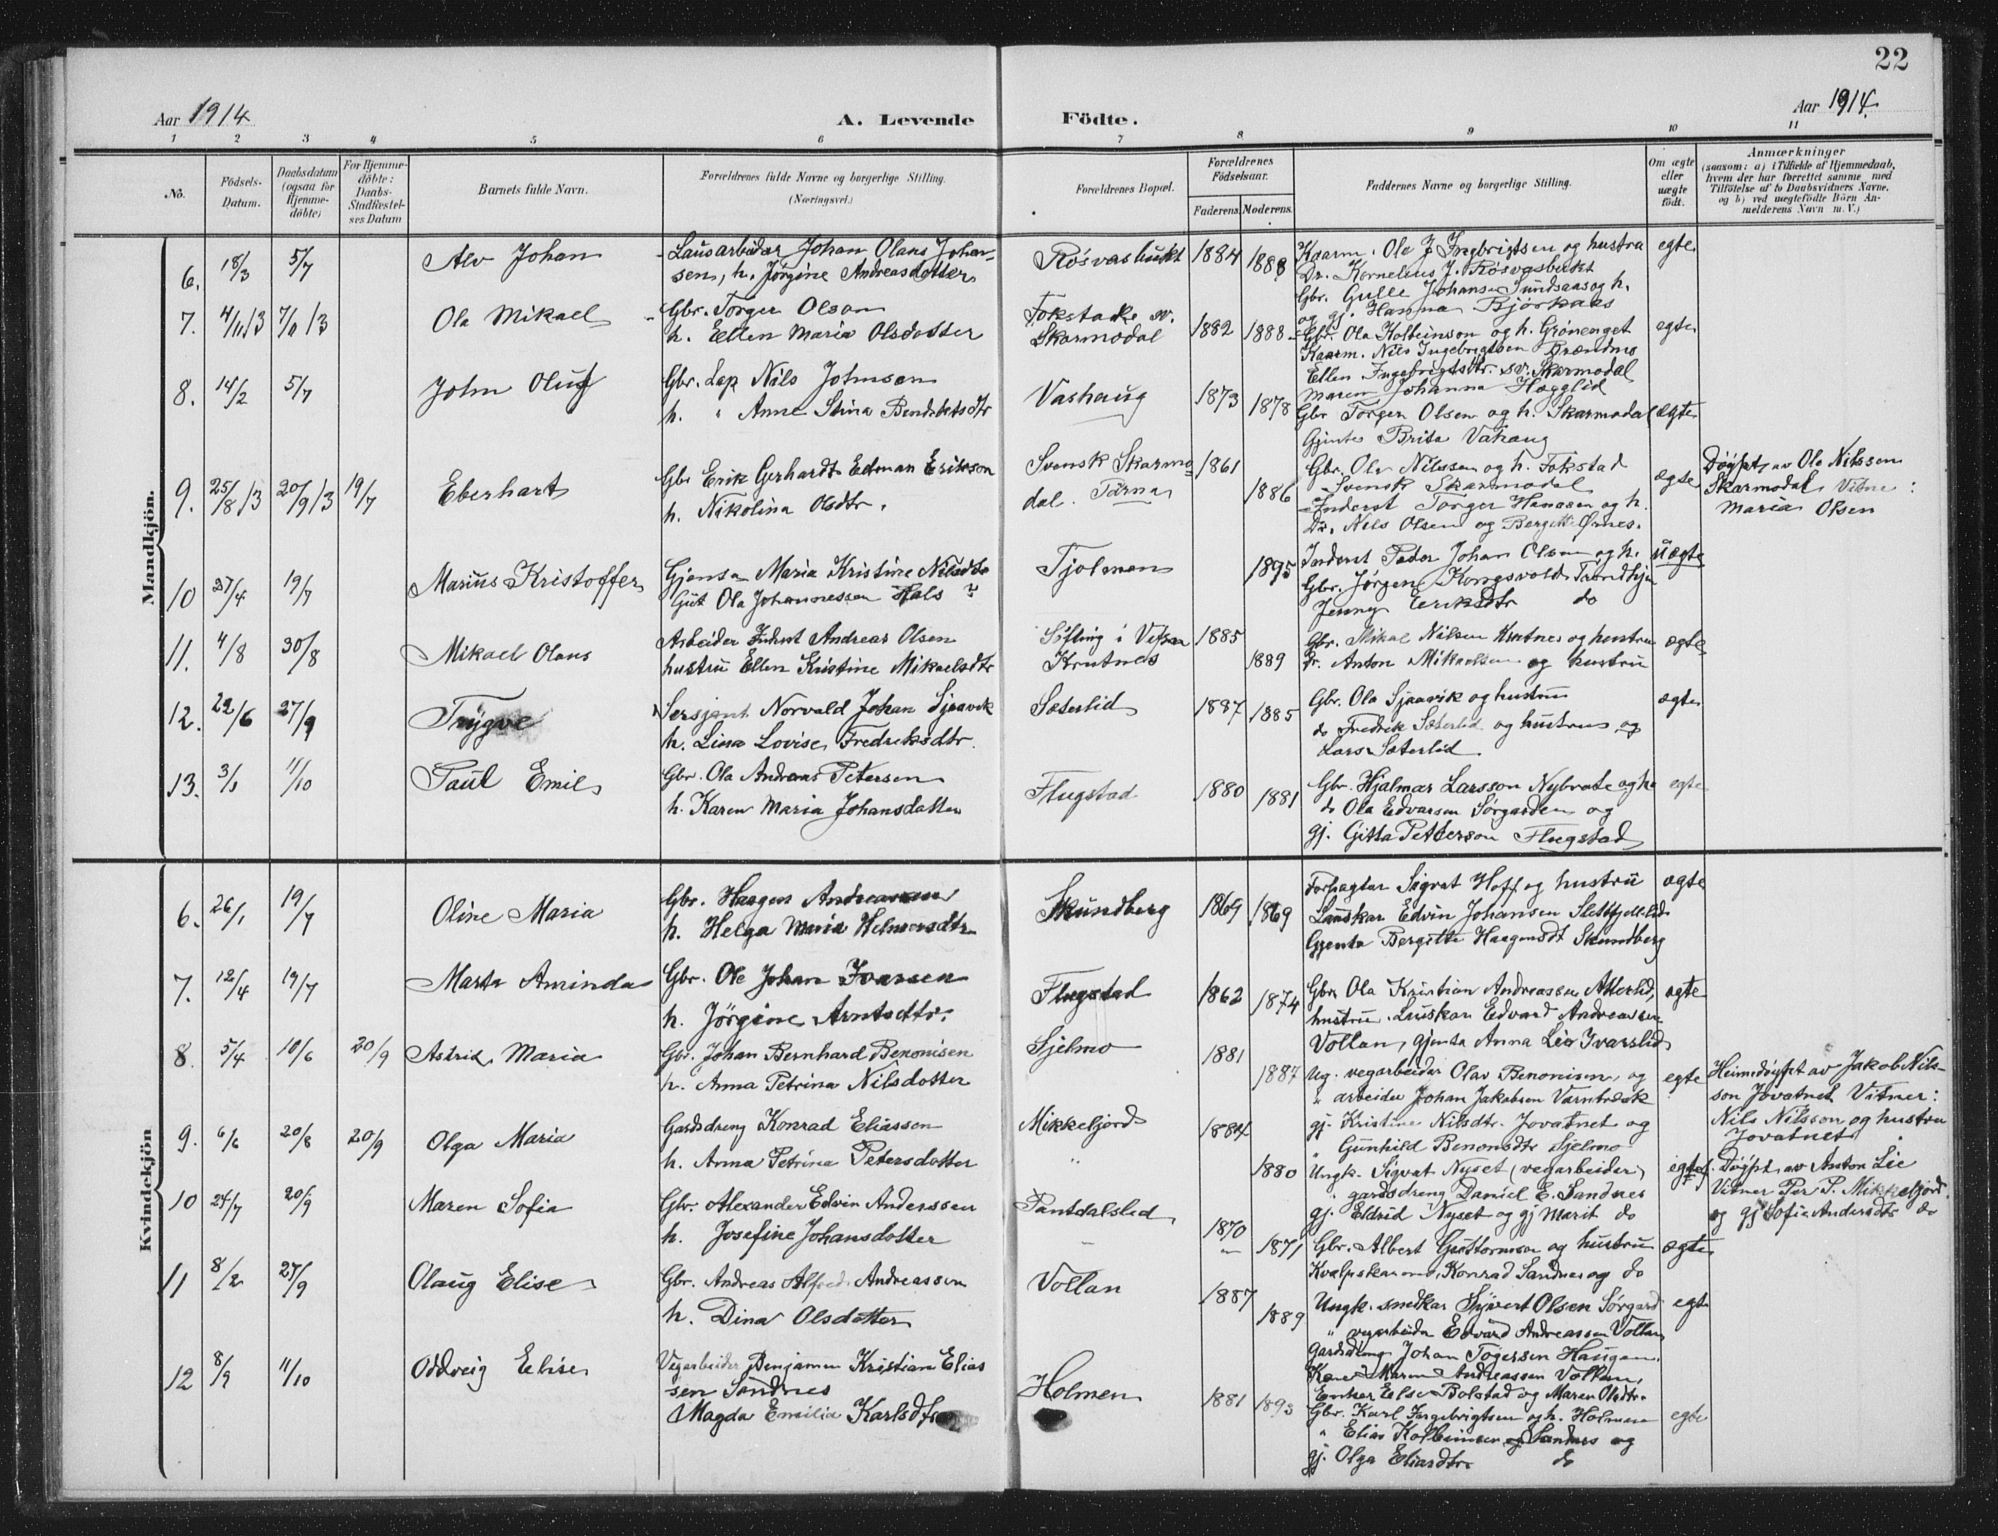 22
Aar 1914
A. Levende
Födte.
Aar 1914.
1 2 3 4 5 6 7 8 9 10 11
No.
Födsels-
Datum.
Daabsdatum
(ogsaa for
Hjemme-
döbte)
For Hjemme-
döbte:
Daabs-
Stadfæstel-
ses Datum
Barnets fulde Navn.
Forældrenes fulde Navne og borgerlige Stilling.
(Næringsvei.)
Forældrenes Bopæl.
Forældrenes
Födselsaar.
Faderens. Moderens.
Faddernes Navne og borgerlige Stilling.
Om ægte
eller
uægte
födt.
Anmærkninger
(saasom: a) i Tilfælde af Hjemmedaab,
hvem der har forrettet samme med
Tilföielse af to Daabsvidners Navne,
og b) ved uægtefödte Börn An-
melderens Navn m. V.)
Mandkjön.
6. 18/3 5/7 Alv Johan
Lausarbeider Johan Olaus Johan-
sen, h. Jørgine Andreasdotter
Røsvasbukt 1884 1888
Kaarm. Ole J Ingebrigtsen og hustru
Dr. Kornelius J. Røsvasbukt
Gbr. Gulle Johansen Sundsaas og h.
og gj. Hanna Bjørkaas
egte
7. 4/11 13 7/11 13 Ola Mikael
Gbr. Torger Olson
h. Ellen Maria Olsdotter
Fokstad sv.
Skarmodal
1882 1888
Gbr. Ola Kolbeinson og h. Grønenget
Kaarm. Nils Ingebrigtsen Brændmo
Ellen Ingebrigtsdtr. sv. Skarmodal
egte
8. 14/2 5/7 John Oluf
Gbr. Lap Nils Johnsen
h. " Anne Stina Bendiktsdtr
Vashaug 1873 1878
Maren Johanna Hægglid
Gbr Torger Olsen og h. Skarmodal
Gjente Brita Vahaug
ægte
9. 25/8 13 20/9 13 19/7 Eberhart
Gbr Erik Gerhardt Edman Erikson
h. Nikolina Olsdtr.
Svensk Skarmo
dal. Tärna
1861 1886
Gbr. Ole Nilssen og h. Fokstad
Svensk Skarmodal
Inderst Torger Hansen og h.
Dr. Nels Olsen og Bergitte Ørnes.
ægte
Døypt av Ole Nilssen
Skarmodal Vitne:
Maria Olsen
10 27/4 19/7 Marius Kristoffer
Gjenta Maria Kristine Nilsdtr
Gut Ola Johannessen Hals
Tjolmen 1895
Inderst Peder Johan Olsen og h.
Gbr. Jørgen Kongsvold Trondhjem
Jenny Eriksdtr do
uægte
11. 4/8 30/8 Mikael Olaus
Arbeider Inderst Andreas Olsen
hustru Ellen Kristine Mikaelsdtr
Sifting i Vefsn
Krutnes
1885 1889
Gbr. Mikal Nilsen Krutnes og hustru
Dr. Anton Mikaelsen og hustru
ægte
12. 22/6 27/9 Trygve
Sersjant Norvald Johan Sjaavik
h. Lina Lovise Fredriksdtr.
Sæterlid 1887 1885
Gbr. Ola Sjaavik og hustru
do Fredrik Sæterlid og hustru og
Lars Sæterlid
ægte
13. 3/1 11/10 Paul Emil
Gbr. Ola Andreas Petersen
h. Karen Maria Johansdotter
Flugstad 1880 1881
Gbr. Hjalmar Larsson Nybrote og h
do Ola Edvarsen Sørgarden og
gj. Gitta Petterson Flugstad
egte
Kvindekjön
6. 26/1 19/7 Oline Maria
Gbr. Haagen Andreassen
h. Helga Maria Helmersdtr
Skundberg 1869 1869
Forpagtar Sigvat Hoff og hustru
Lauskar Edvin Johansen Slettfjellid
Gjenta Bergitte Haagensdt Skundberg
ægte
7. 12/4 19/7 Marta Aminda
Gbr. Ole Johan Ivarsen
h. Jørgine Arntsdtr.
Flugstad 1862 1874
Gbr Ola Kristian Andreassen Atterlid,
hustru. Lauskar Edvard Andreassen
Vollan, gjenta Anna Lio Ivarslid
ægte
8. 5/4 10/6 20/9 Astrid Maria
Gbr. Johan Bernhard Benonisen
h. Anna Petrina Nilsdotter
Sjelmo 1881 1887
Ug. vegarbeider Olav Benonisen, og
" arbeider Johan Jakobsen Varntresk
gj. Kristine Nilsdtr. Jovatnet og
" Gunhild Benonsdtr Sjelmo
egte
Heimedøypt av Jakob Nils-
son Jovatnet Vitner:
Nils Nilsson og hustru
Jovatnet
9. 6/6 20/8 20/9 Olga Maria
Gardsdreng Konrad Eliassen
h. Anna Petrina Petersdotter
Mikkeljord
"
1884 1880
Ungk. Sigvat Nyset, vegarbeider,
" gardsdreng Daniel E. Sandnes
gj. Eldrid Nyset og gj Marit do
egte
Døypt av Anton Lie
Vitner Per P. Mikkeljord
og gj Sofie Andersdtr do
10 24/7 20/9 Maren Sofia
Gbr. Alexander Edvin Anderssen
h. Josefine Johansdotter
Pantdalslid
1870 1871
Gbr. Albert Guttormson og hustru
Kvalpskarmo, Konrad Sandnes og do
ægte
11 8/2 27/9 Olaug Elise
Gbr. Andreas Alfred Andreassen
h. Dina Olsdotter
Vollan 1887 1889
Ungk. snedkar Syvert Olsen Sørgard
" vegarbeider Edvard Andreassen Vollan
Gardsdreng Johan Togersen Haugen.
Kone Maren Andreassen Vollan,
Enker Else Bolstad og Maren Olsdtr.
egte
12 8/9 11/10 Oddveig Elise
Vegarbeider Benjamin Kristian Elias
sen Sandnes
Magda Emilia Karlsdtr
Holmen 1881 1893
Gbr. Karl Ingebrigtsen og h. Holmen
" Elias Kolbeinsen Sandnes og
gj. Olga Eliasdtr do
egte